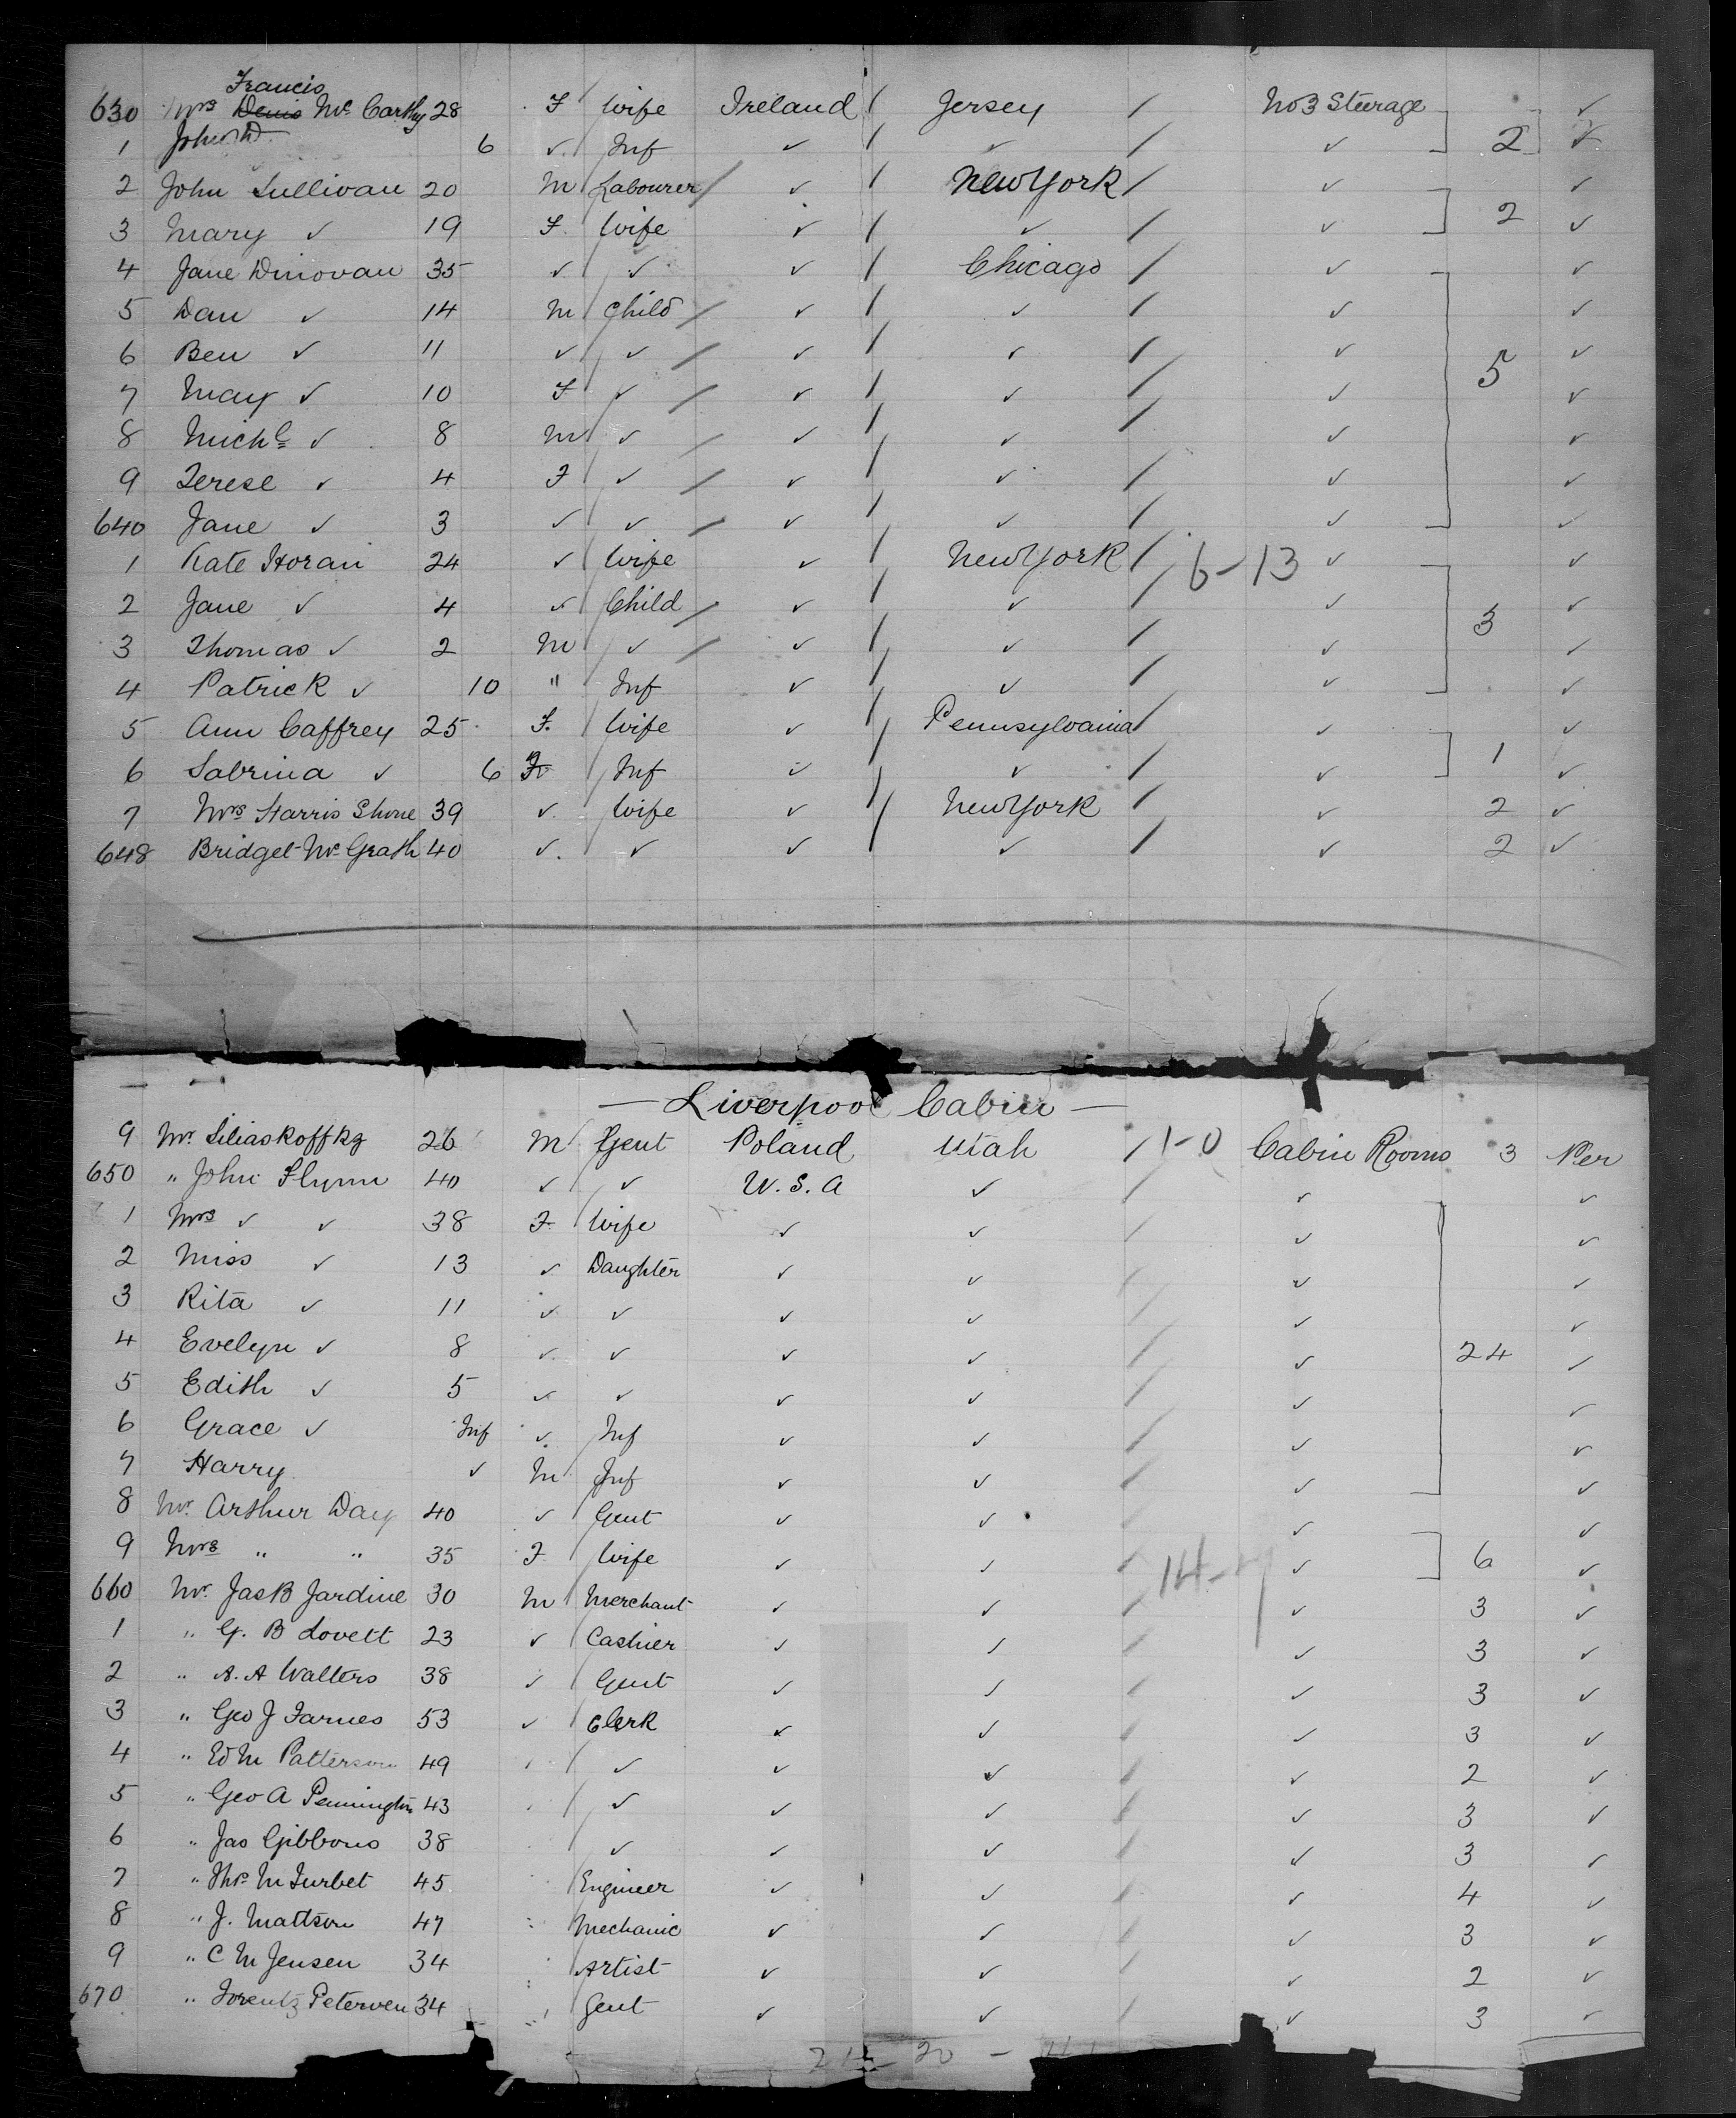 Francis
630 Mrs Denis Mc Carthy 28 F Wife Ireland / Jersey / No 3 Steerage ✓
1 John D. 6 ✓ Inf ✓ / ✓ / ✓ 2 ✓
2 John Sullivan 20 M Labourer / ✓ / New York / ✓ ✓
3 Mary ✓ 19 F. Wife ✓ / ✓ / ✓ 2 ✓
4 Jane Dinovan 35 ✓ ✓ ✓ / Chicago / ✓ ✓
5 Dan ✓ 14 M Child / ✓ / ✓ / ✓ ✓
6 Ben ✓ 11 ✓ ✓ / ✓ / ✓ / ✓ 5 ✓
7 May ✓ 10 F ✓ / ✓ / ✓ / ✓ ✓
8 Michl ✓ 8 M ✓ / ✓ / ✓ / ✓ ✓
9 Terese ✓ 4 F ✓ / ✓ / ✓ / ✓ ✓
640 Jane ✓ 3 ✓ ✓ / ✓ / ✓ / ✓ ✓
1 Kate Horan 24 ✓ Wife ✓ / New York / 6-13 ✓ ✓
2 Jane ✓ 4 ✓ Child / ✓ / ✓ / ✓ 3 ✓
3 Thomas ✓ 2 M ✓ / ✓ / ✓ / ✓ ✓
4 Patrick ✓ 10 " Inf ✓ / ✓ / ✓ ✓
5 Ann Caffrey 25 F. Wife ✓ / Pennsylvania / ✓ ✓
6 Sabrina ✓ 6 F Inf ✓ / ✓ / ✓ 1 ✓
7 Mrs Harris Shone 39 ✓ Wife ✓ / New York / ✓ 2 ✓
648 Bridget Mc Grath 40 ✓ ✓ ✓ / ✓ / ✓ 2 ✓
— Liverpool Cabin —
9 Mr. Siliaskoffkz 26 M Gent Poland Utah / 1-0 Cabin Rooms 3 Per
650 " John Flynn 40 ✓ ✓ U.S.A ✓ / ✓ ✓
1 Mrs ✓ ✓ 38 F Wife ✓ ✓ / ✓ ✓
2 Miss ✓ 13 ✓ Daughter ✓ ✓ / ✓ ✓
3 Rita ✓ 11 ✓ ✓ ✓ ✓ / ✓ ✓
4 Evelyn ✓ 8 ✓ ✓ ✓ ✓ / ✓ 24 ✓
5 Edith ✓ 5 ✓ ✓ ✓ ✓ / ✓ ✓
6 Grace ✓ Inf ✓ Inf ✓ ✓ / ✓ ✓
7 Harry ✓ M Inf ✓ ✓ / ✓ ✓
8 Mr. Arthur Day 40 ✓ Gent ✓ ✓ ✓ ✓
9 Mrs " " 35 F Wife ✓ ✓ / 14-7 ✓ 6 ✓
660 Mr. Jas B Jardine 30 M Merchant ✓ ✓ / ✓ 3 ✓
1 " G. B Lovett 23 ✓ Cashier ✓ ✓ / ✓ 3 ✓
2 " A. A Walters 38 ✓ Gent ✓ ✓ / ✓ 3 ✓
3 " Geo J Farnes 53 ✓ Clerk ✓ ✓ / ✓ 3 ✓
4 " Ed M Patterson 49 ✓ ✓ ✓ / ✓ 2 ✓
5 " Geo A Pennington 43 ✓ ✓ ✓ / ✓ 3 ✓
6 " Jas Gibbons 38 ✓ ✓ ✓ / ✓ 3 ✓
7 " Thos M Turbet 45 Engineer ✓ ✓ / ✓ 4 ✓
8 " J. Mattson 47 Mechanic ✓ ✓ / ✓ 3 ✓
9 " C M Jensen 34 Artist ✓ ✓ / ✓ 2 ✓
670 " Lorentz Petersen 34 Gent ✓ ✓ / ✓ 3 ✓